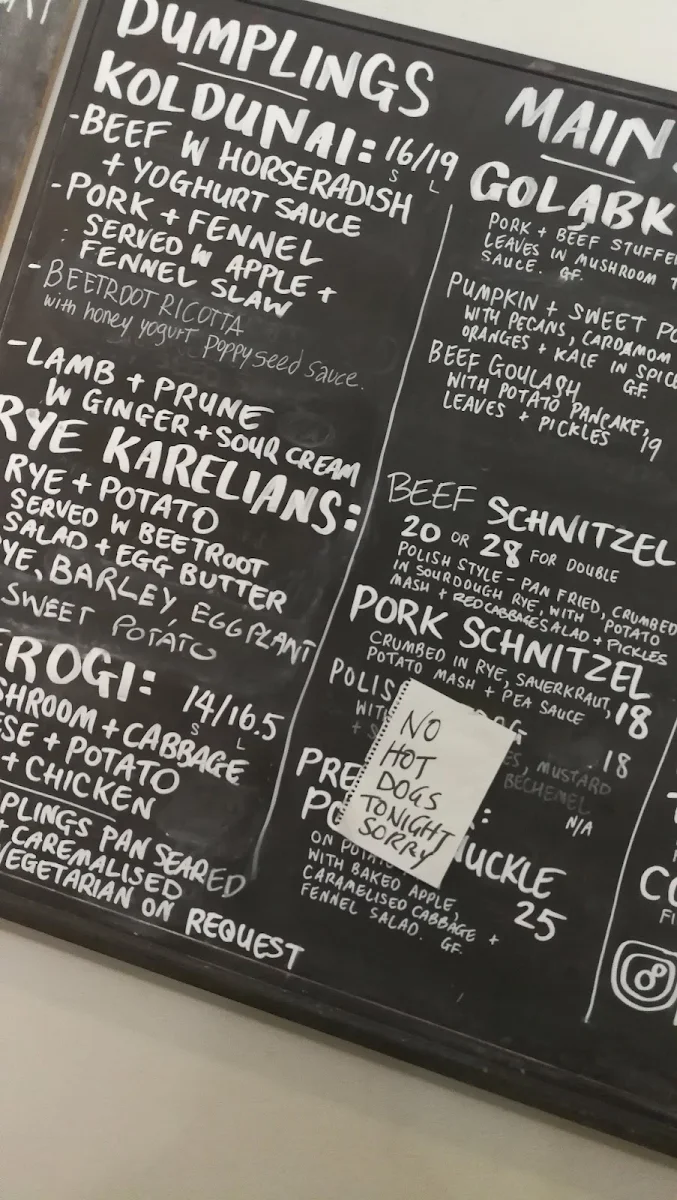 DUMPLINGS
KOLDUNAI: 16/19
S L
-BEEF W HORSERADISH
+ YOGHURT SAUCE
-PORK + FENNEL
SERVED W APPLE +
FENNEL SLAW
-BEETROOT RICOTTA
with honey yogurt poppyseed sauce.
-LAMB + PRUNE
W GINGER + SOUR CREAM
RYE KARELIANS:
RYE + POTATO
SERVED W BEETROOT
SALAD + EGG BUTTER
YE, BARLEY, EGGPLANT
SWEET POTATO
ROGI: 14/16.5
S L
SHROOM + CABBAGE
ESE + POTATO
+ CHICKEN
PLINGS PAN SEARED
CAREMALISED
VEGETARIAN ON REQUEST
MAIN
GOLĄBK
PORK + BEEF STUFFE
LEAVES IN MUSHROOM T
SAUCE. GF.
PUMPKIN + SWEET PO
WITH PECANS, CARDAMOM
ORANGES + KALE IN SPIC
GF.
BEEF GOULASH
WITH POTATO PANCAKE,
LEAVES + PICKLES 19
BEEF SCHNITZEL
20 OR 28 FOR DOUBLE
POLISH STYLE - PAN FRIED, CRUMBED
IN SOURDOUGH RYE, WITH POTATO
MASH + RED CABBAGE SALAD + PICKLES
PORK SCHNITZEL
CRUMBED IN RYE, SAUERKRAUT,
POTATO MASH + PEA SAUCE 18
POLIS OG
WIT ES, MUSTARD 18
+ S BECHEMEL
N/A
NO
HOT
DOGS
TONIGHT
SORRY
PRE :
PO NUCKLE
25
ON POTATO
WITH BAKED APPLE,
CARAMELISED CABBAGE +
FENNEL SALAD. GF.
CO
FI